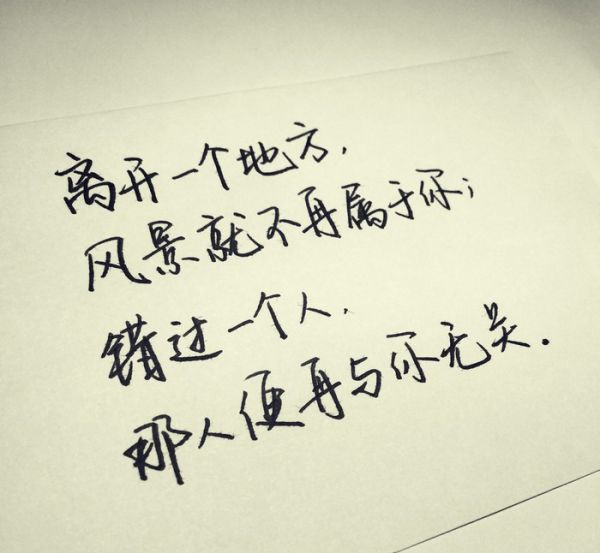 离开一个地方，
风景就不再属于你；
错过一个人，
那人便再与你无关.